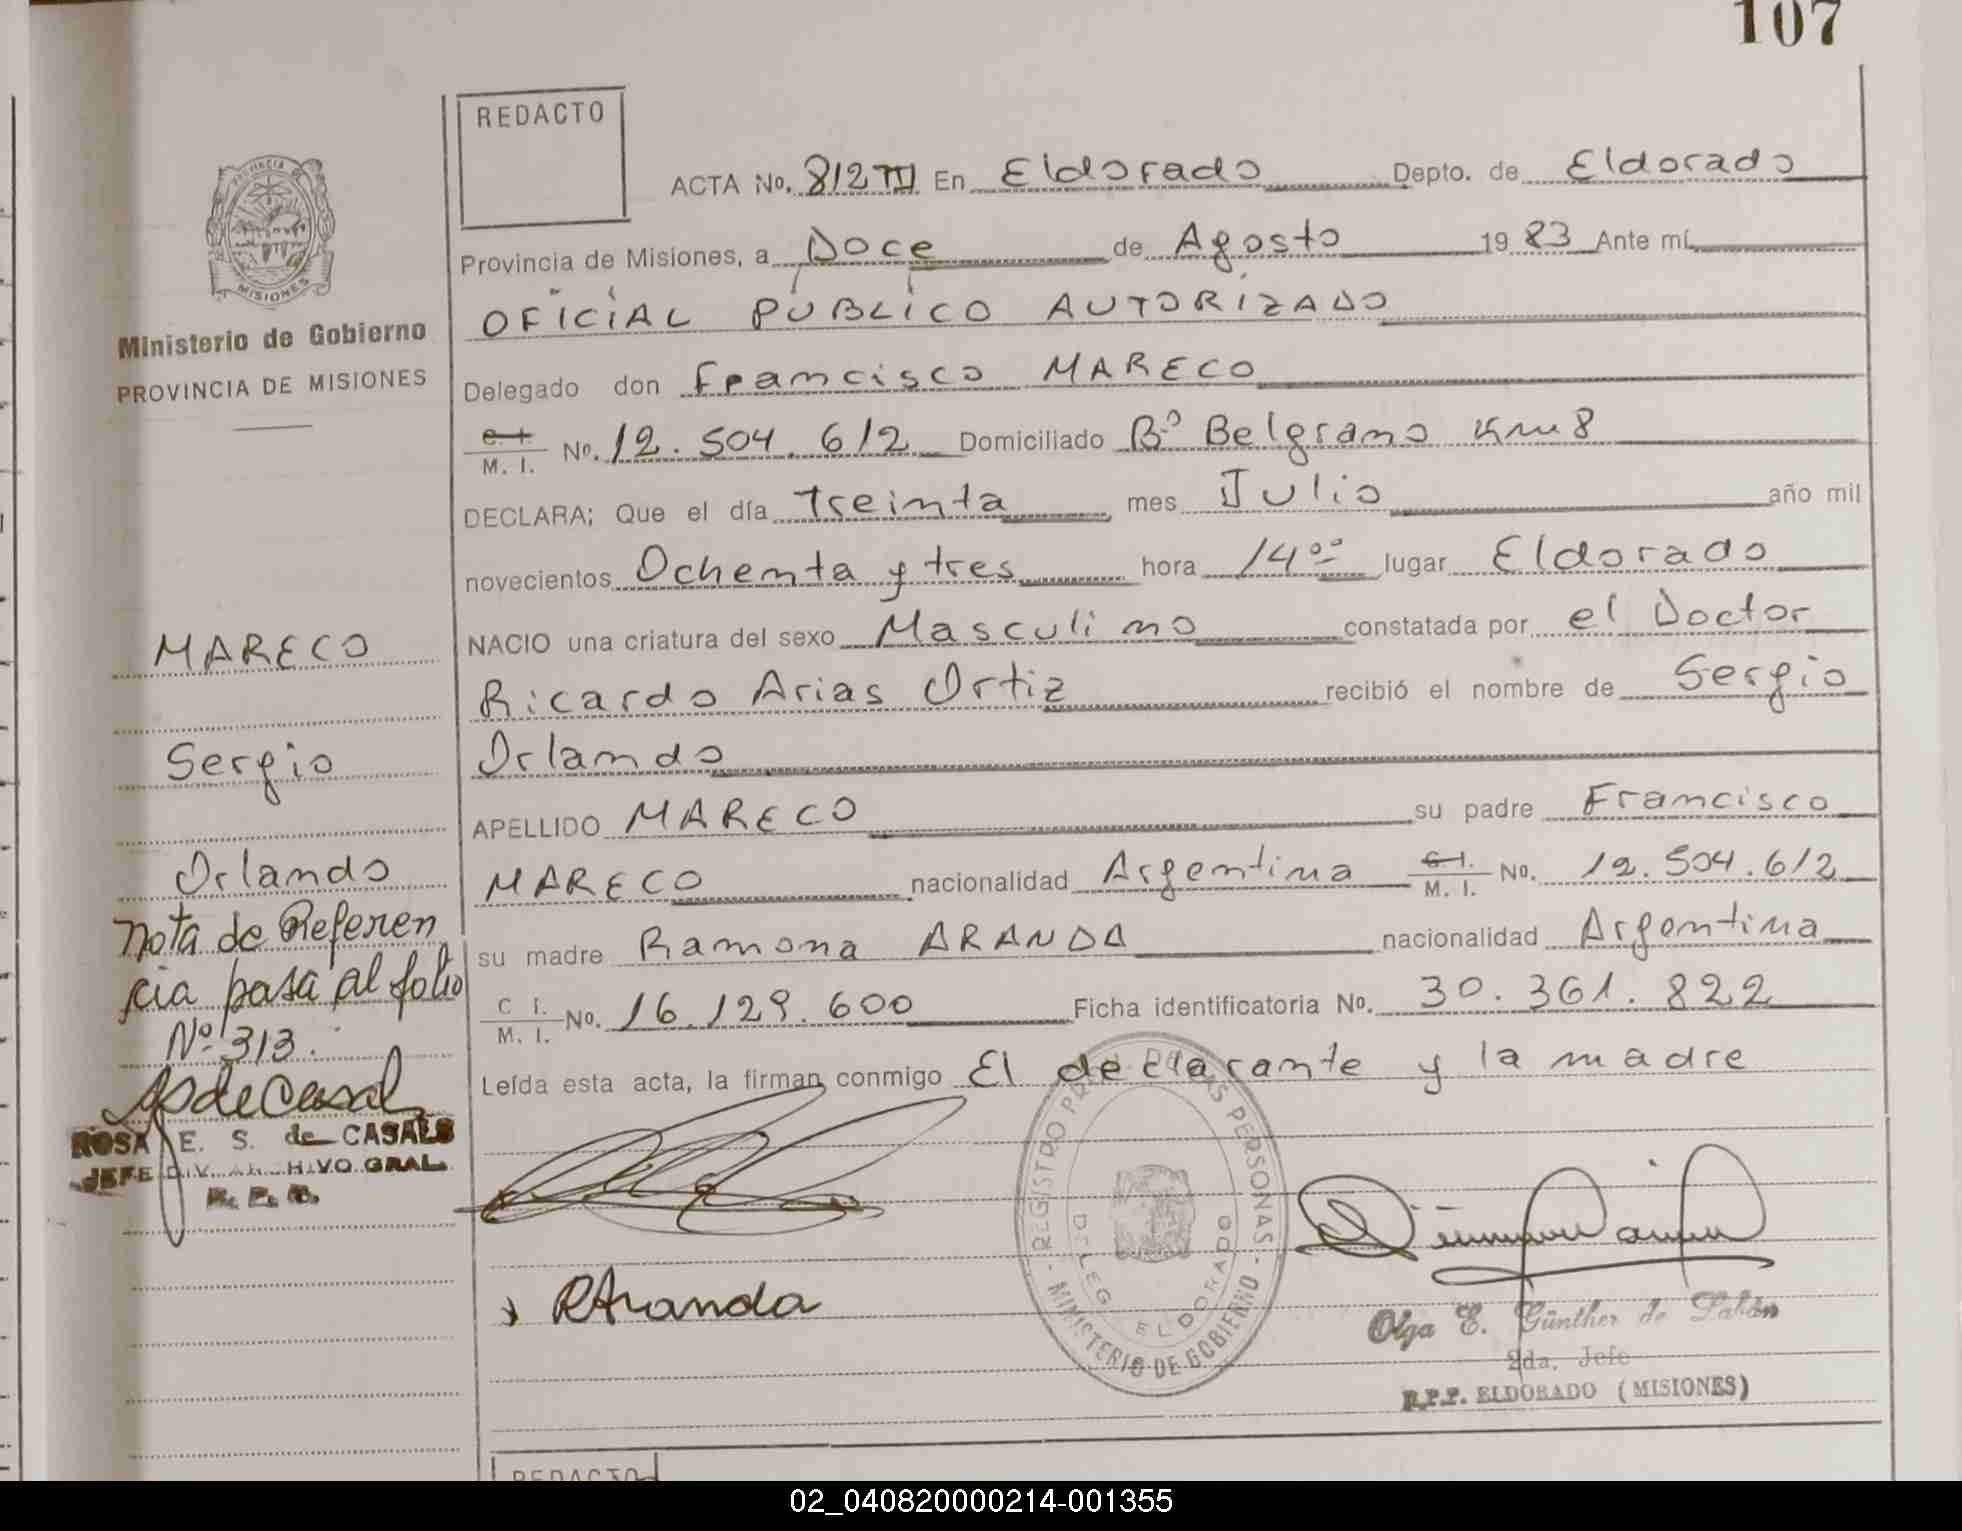 107
REDACTO
ACTA No. 812 III En Eldorado Depto. de Eldorado
Provincia de Misiones, a Doce de Agosto 1983 Ante mí
OFICIAL PÚBLICO AUTORIZADO
Delegado don Francisco MARECO
C. I. M. I. No. 12.504.612 Domiciliado Bº Belgrano Km 8
DECLARA; Que el día treinta mes Julio año mil
novecientos Ochenta y tres hora 14⁰⁰ lugar Eldorado
NACIO una criatura del sexo Masculino constatada por el Doctor
Ricardo Arias Ortiz recibió el nombre de Sergio
Orlando
APELLIDO MARECO su padre Francisco
MARECO nacionalidad Argentina C. I. M. I. No. 12.504.612
su madre Ramona ARANDA nacionalidad Argentina
C I. M. I. No. 16.129.600 Ficha identificatoria No. 30.361.822
Leída esta acta, la firman conmigo El declarante y la madre
RAranda
REGISTRO PERSONAS - MINISTERIO DE GOBIERNO
DELEG ELDORADO
Olga E. Günther de
2da. Jefe
R.P.P. ELDORADO (MISIONES)
PROVINCIA
MISIONES
Ministerio de Gobierno
PROVINCIA DE MISIONES
MARECO
Sergio
Orlando
Nota de Referen
cia pasa al folio
Nº 313.
ROSA E. S. de CASALS
JEFE DIV. ARCHIVO GRAL.
REDACTO
02_040820000214-001355